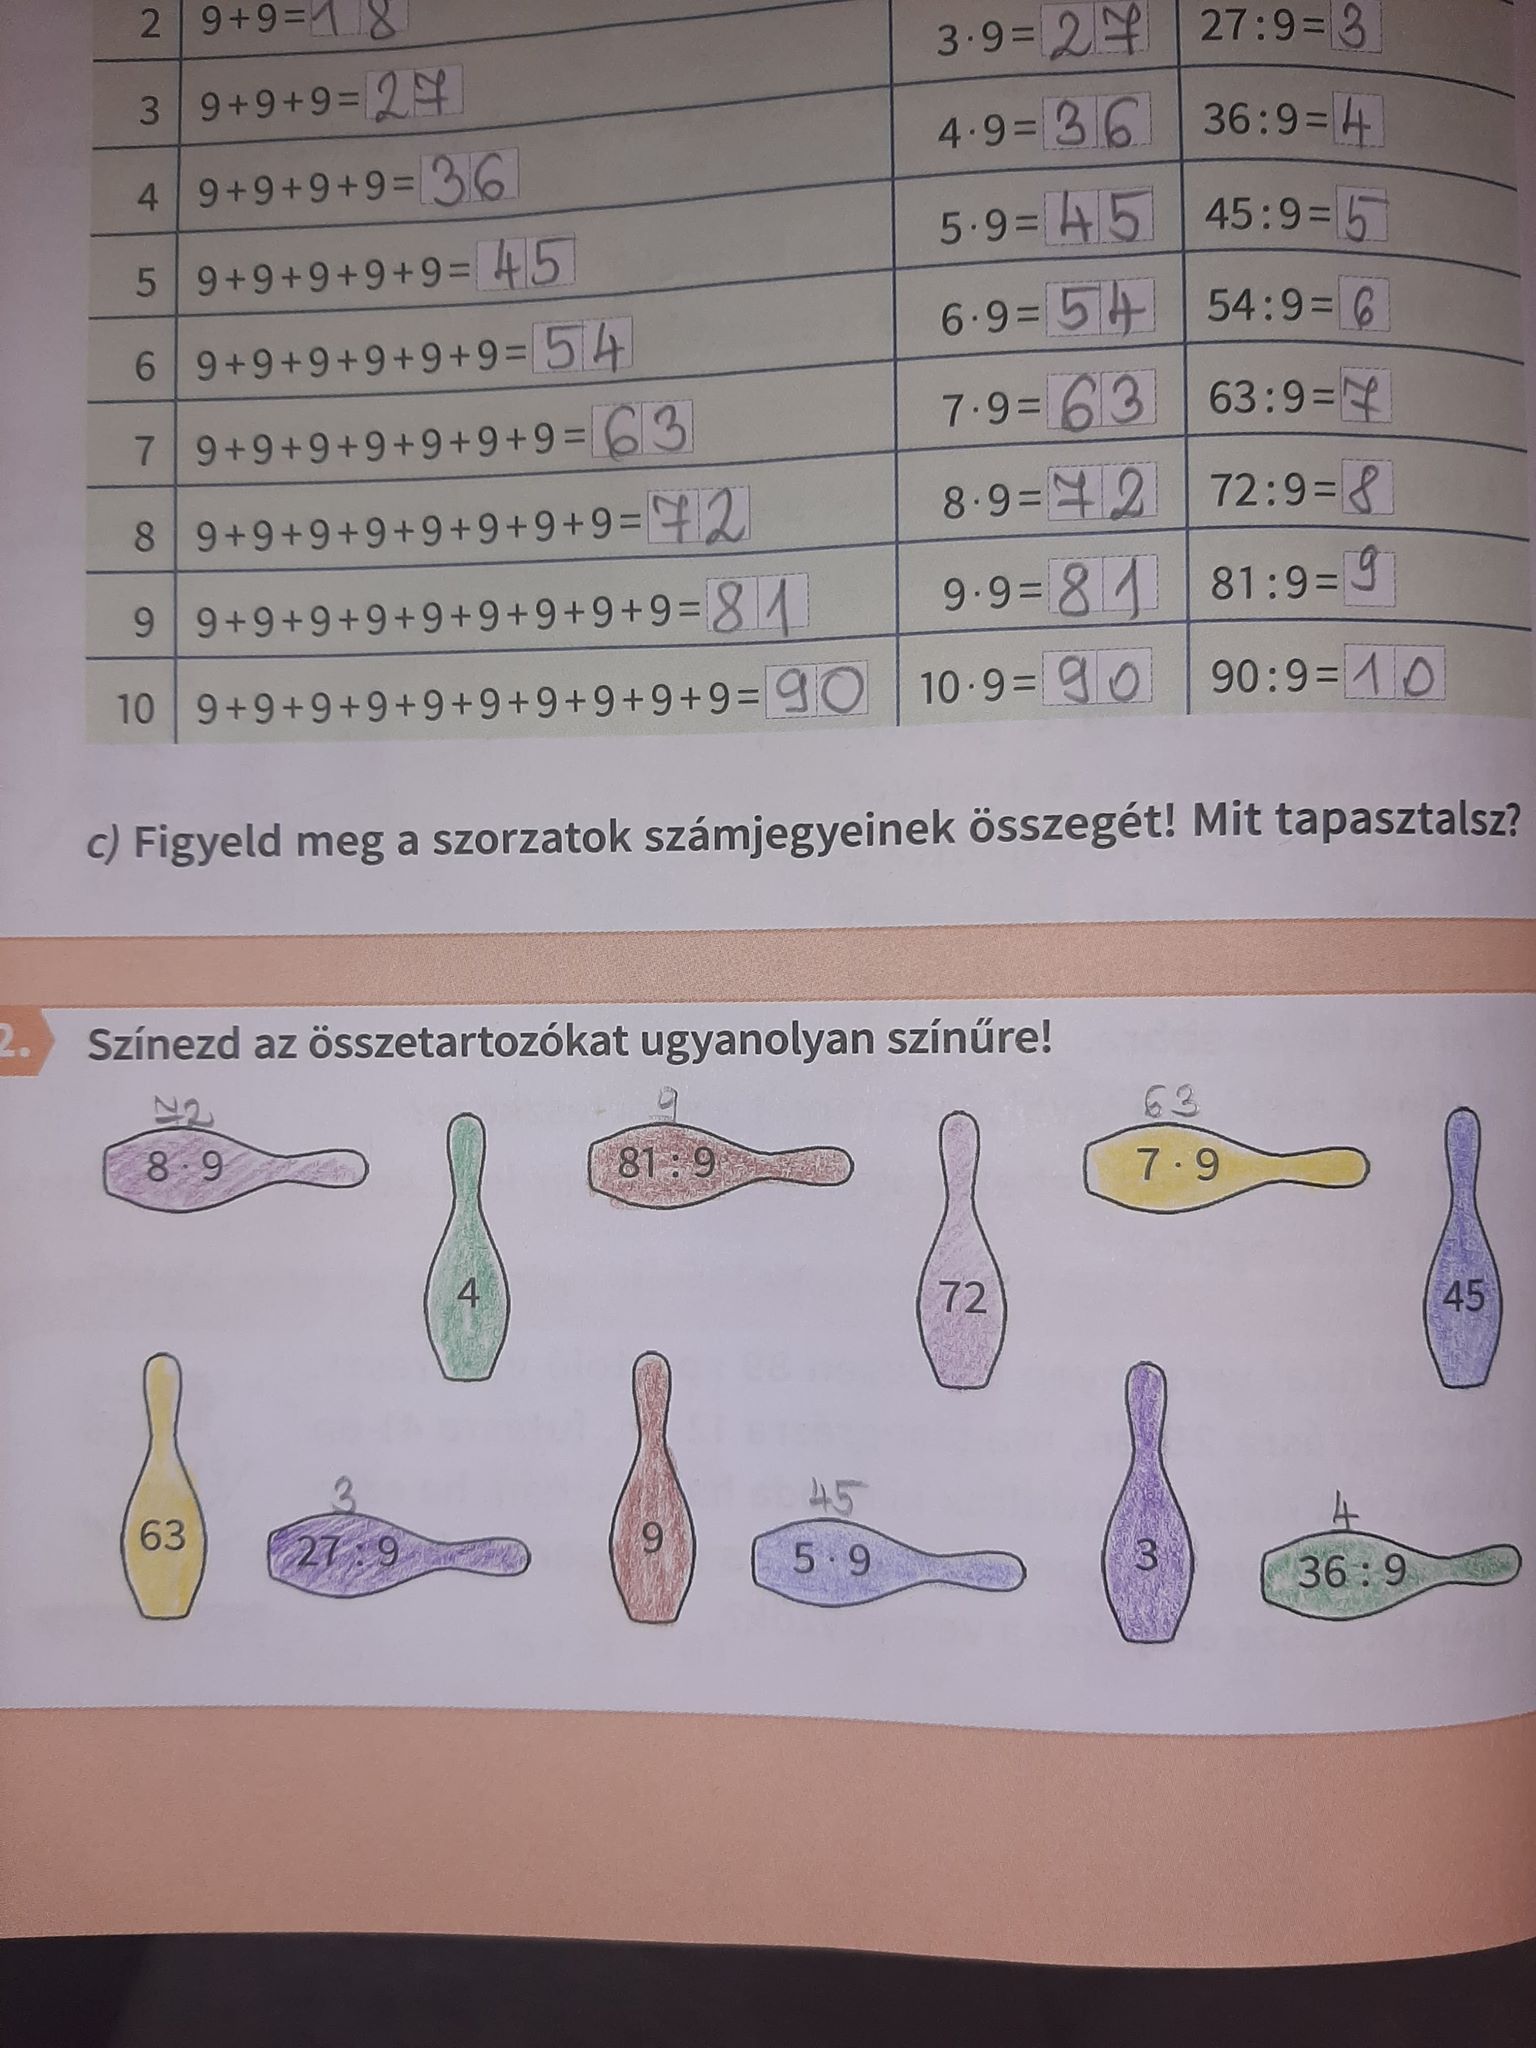 2 9+9=18
3·9=27 27:9=3
3 9+9+9=27
4·9=36 36:9=4
4 9+9+9+9=36
5·9=45 45:9=5
5 9+9+9+9+9=45
6·9=54 54:9=6
6 9+9+9+9+9+9=54
7·9=63 63:9=7
7 9+9+9+9+9+9+9=63
8·9=72 72:9=8
8 9+9+9+9+9+9+9+9=72
9·9=81 81:9=9
9 9+9+9+9+9+9+9+9+9=81
10 9+9+9+9+9+9+9+9+9+9=90 10·9=90 90:9=10
c) Figyeld meg a szorzatok számjegyeinek összegét! Mit tapasztalsz?
2. Színezd az összetartozókat ugyanolyan színűre!
72 9 63
8·9 81:9 7·9
4 72 45
3 45 4
63 27:9 9 5·9 3 36:9